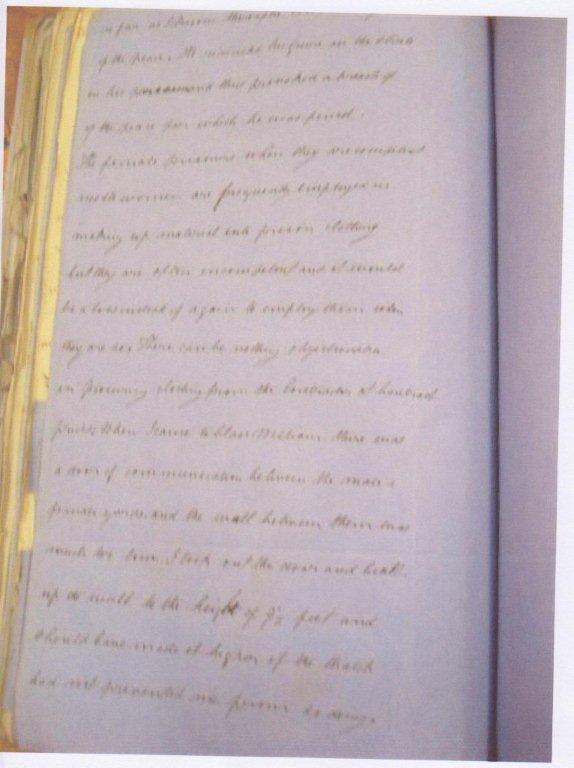 in far as I
of the peace. He
in his and thus provoked a breach of
of the peace for which he was fined.
The female prisoners when they are competent
women are frequently employed in
making up material into prison clothing
but they are often incompetent and it would
be a loss instead of a gain to employ them when
they are so. There can be nothing objectionable
in procuring clothing from the Contractor at Contract
prices. When I came to there was
a door of communication between the male &
female yards and the wall between them was
much too low. I took out the door and built
up the wall to the height of 9½ feet and
should have made it higher if the
had not prevented me from so doing.